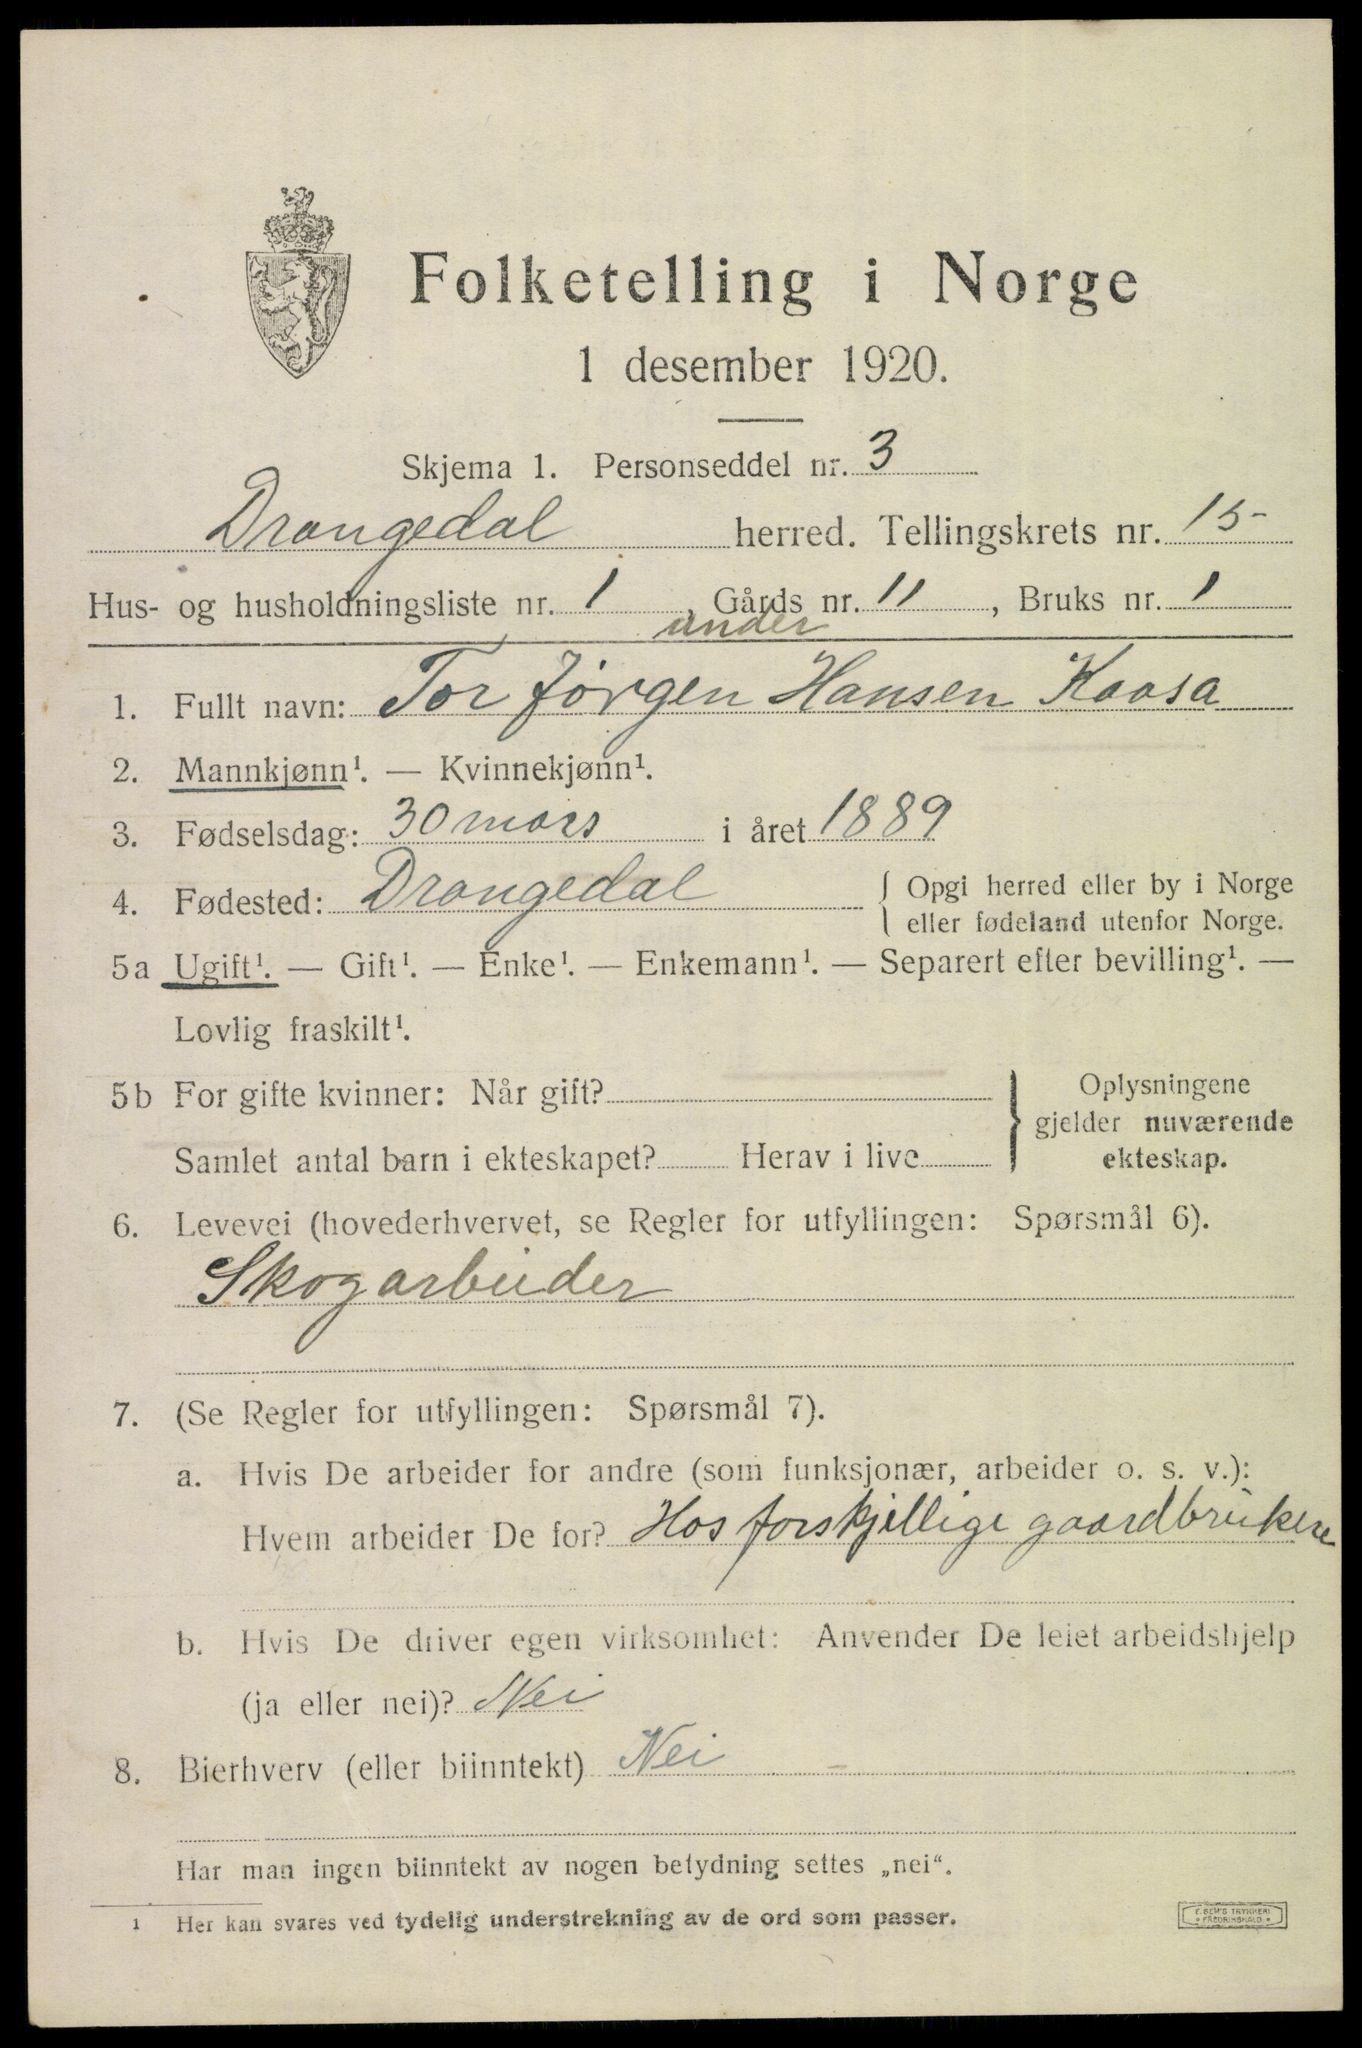 Folketelling i Norge
1 desember 1920.
Skjema 1. Personseddel nr. 3
Drangedal herred. Tellingskrets nr. 15
Hus- og husholdningsliste nr. 1, Gårds nr. 11, Bruks nr. 1
under
1. Fullt navn: Tor Jørgen Hansen Kaasa
2. Mannkjønn¹. — Kvinnekjønn¹.
3. Fødselsdag: 30 mars i året 1889
4. Fødested: Drangedal { Opgi herred eller by i Norge
eller fødeland utenfor Norge.
5a Ugift¹. — Gift¹. — Enke¹. — Enkemann¹. — Separert efter bevilling¹. —
Lovlig fraskilt¹.
5b For gifte kvinner: Når gift? } Oplysningene
gjelder nuværende
Samlet antal barn i ekteskapet? Herav i live ekteskap.
6. Levevei (hovederhvervet, se Regler for utfyllingen: Spørsmål 6).
Skogarbeider
7. (Se Regler for utfyllingen: Spørsmål 7).
a. Hvis De arbeider for andre (som funksjonær, arbeider o. s. v.):
Hvem arbeider De for? Hos forskjellige gaardbrukere
b. Hvis De driver egen virksomhet: Anvender De leiet arbeidshjelp
(ja eller nei)? Nei
8. Bierhverv (eller biinntekt) Nei
Har man ingen biinntekt av nogen betydning settes „nei“.
1 Her kan svares ved tydelig understrekning av de ord som passer.
E. SEM'S TRYKKERI
FREDRIKSHALD